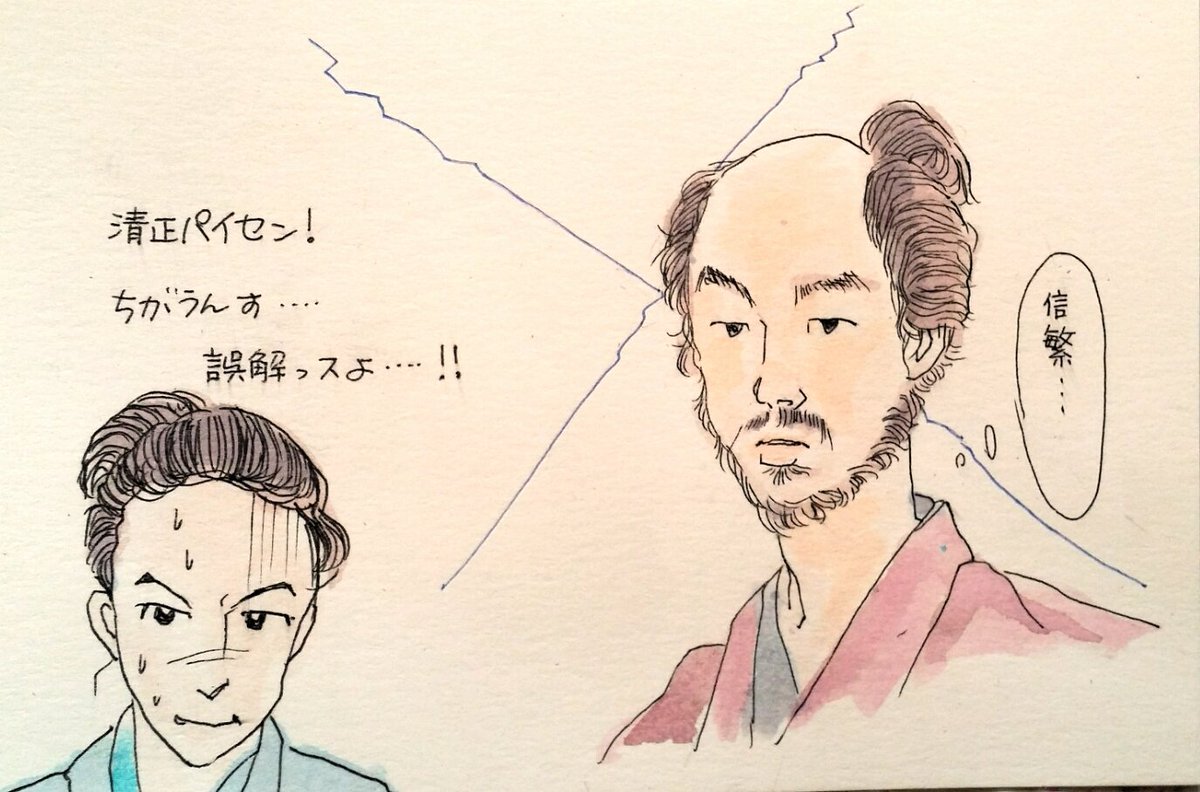 清正パイセン!
ちがうんす‥‥
誤解っスよ‥‥!!
信繁…